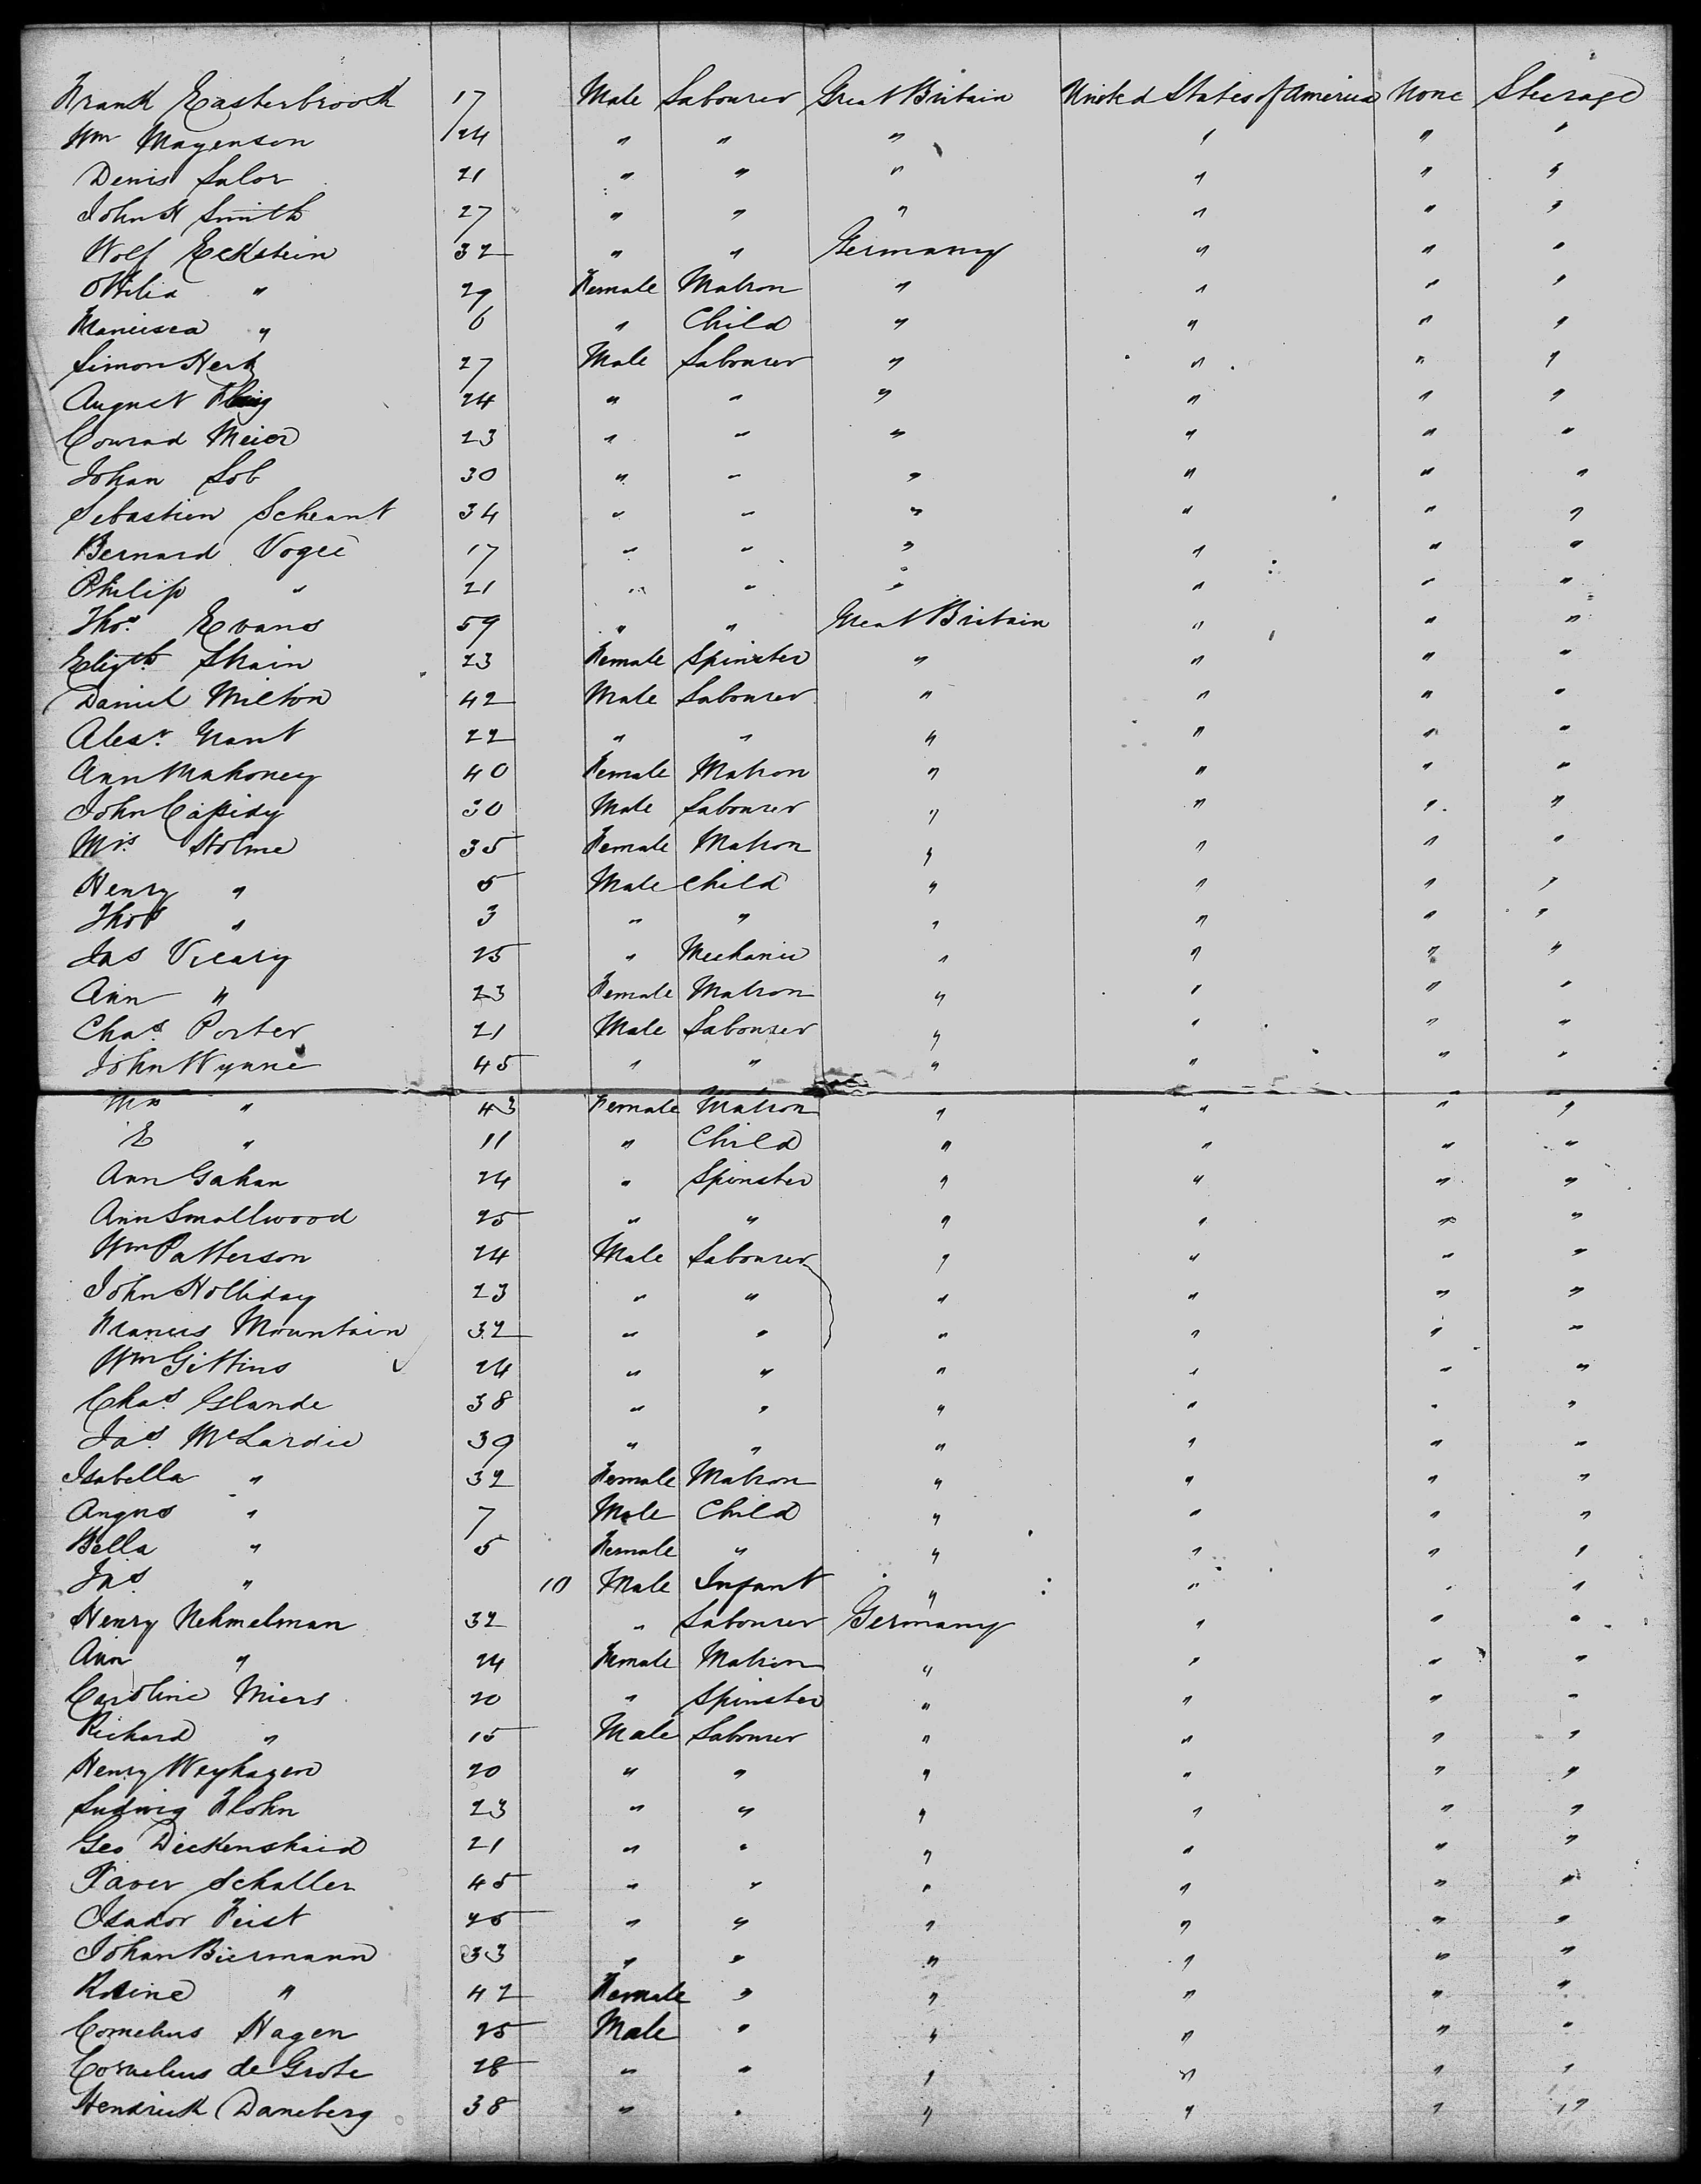 Frank Easterbrook 17 Male Labourer Great Britain United States of America None Steerage
Wm Magenson 24 " " " " " "
Denis Lalor 21 " " " " " "
John H Smith 27 " " " " " "
Wolf Eckstein 32 " " Germany " " "
Ottilia " 29 Female Matron " " " "
Francisca " 6 " Child " " " "
Simon Herb 27 Male Labourer " " " "
August 24 " " " " " "
Conrad Meier 23 " " " " " "
Johan Lob 30 " " " " " "
Sebastien Scheant 34 " " " " " "
Bernard Vogee 17 " " " " " "
Philip " 21 " " " " " "
Thos Evans 59 " " Great Britain " " "
Elizth Strain 23 Female Spinster " " " "
Daniel Milton 42 Male Labourer " " " "
Alexr Nant 22 " " " " " "
Ann Mahoney 40 Female Matron " " " "
John Cassidy 30 Male Labourer " " " "
Mrs Holme 35 Female Matron " " " "
Henry " 5 Male Child " " " "
Thos " 3 " " " " " "
Jas Vicary 25 " Mechanic " " " "
Ann " 23 Female Matron " " " "
Chas Porter 21 Male Labourer " " " "
John Wynne 45 " " " " " "
Mrs " 43 Female Matron " " " "
E " 11 " Child " " " "
Ann Gahan 24 " Spinster " " " "
Ann Smallwood 25 " " " " " "
Wm Patterson 24 Male Labourer " " " "
John Holliday 23 " " " " " "
Francis Mountain 32 " " " " " "
Wm Gittins 24 " " " " " "
Chas Glande 38 " " " " " "
Jas McLardie 39 " " " " " "
Isabella " 32 Female Matron " " " "
Angus " 7 Male Child " " " "
Bella " 5 Female " " " " "
Jas " 10 Male Infant " " " "
Henry Nehmelman 32 " Labourer Germany " " "
Ann " 24 Female Matron " " " "
Caroline Miers 20 " Spinster " " " "
Richard " 15 Male Labourer " " " "
Henry Weyhagen 20 " " " " " "
Ludwig Flohn 23 " " " " " "
Geo Dickenshaid 21 " " " " " "
Xaver Schaller 45 " " " " " "
Isador Feist 25 " " " " " "
Johan Biermann 33 " " " " " "
Rosine " 42 Female " " " " "
Cornelius Hagen 25 Male " " " " "
Cornelius de Grote 28 " " " " " "
Hendrick Daneberg 38 " " " " " "